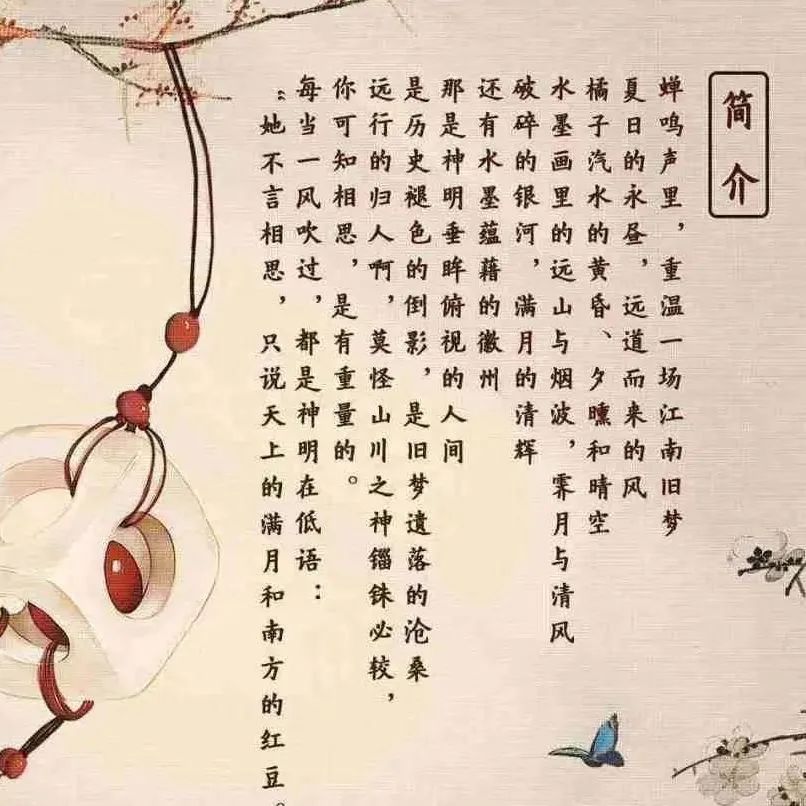 简介
蝉鸣声里，重温一场江南旧梦
夏日的永昼，远道而来的风
橘子汽水的黄昏、夕曛和晴空
水墨画里的远山与烟波，霁月与清风
破碎的银河，满月的清辉
还有水墨蕴藉的徽州
那是神明垂眸俯视的人间
是历史褪色的倒影，是旧梦遗落的沧桑
远行的归人啊，莫怪山川之神锱铢必较，
你可知相思，是有重量的。
每当一风吹过，都是神明在低语：
“她不言相思，只说天上的满月和南方的红豆。